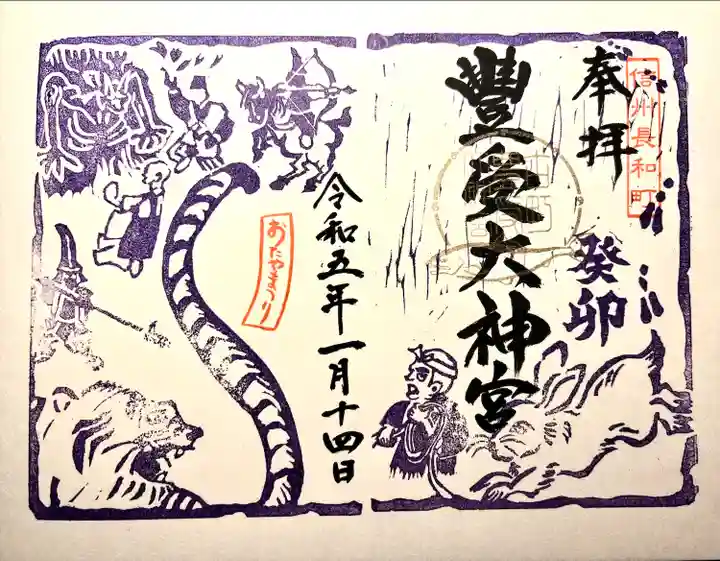 信州長和町
奉拝
癸卯
豊受大神宮
令和五年一月十四日
おたやまつり